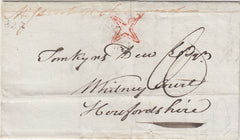 Tomkyns Dew Esqr
Whitney Court
Herefordshire